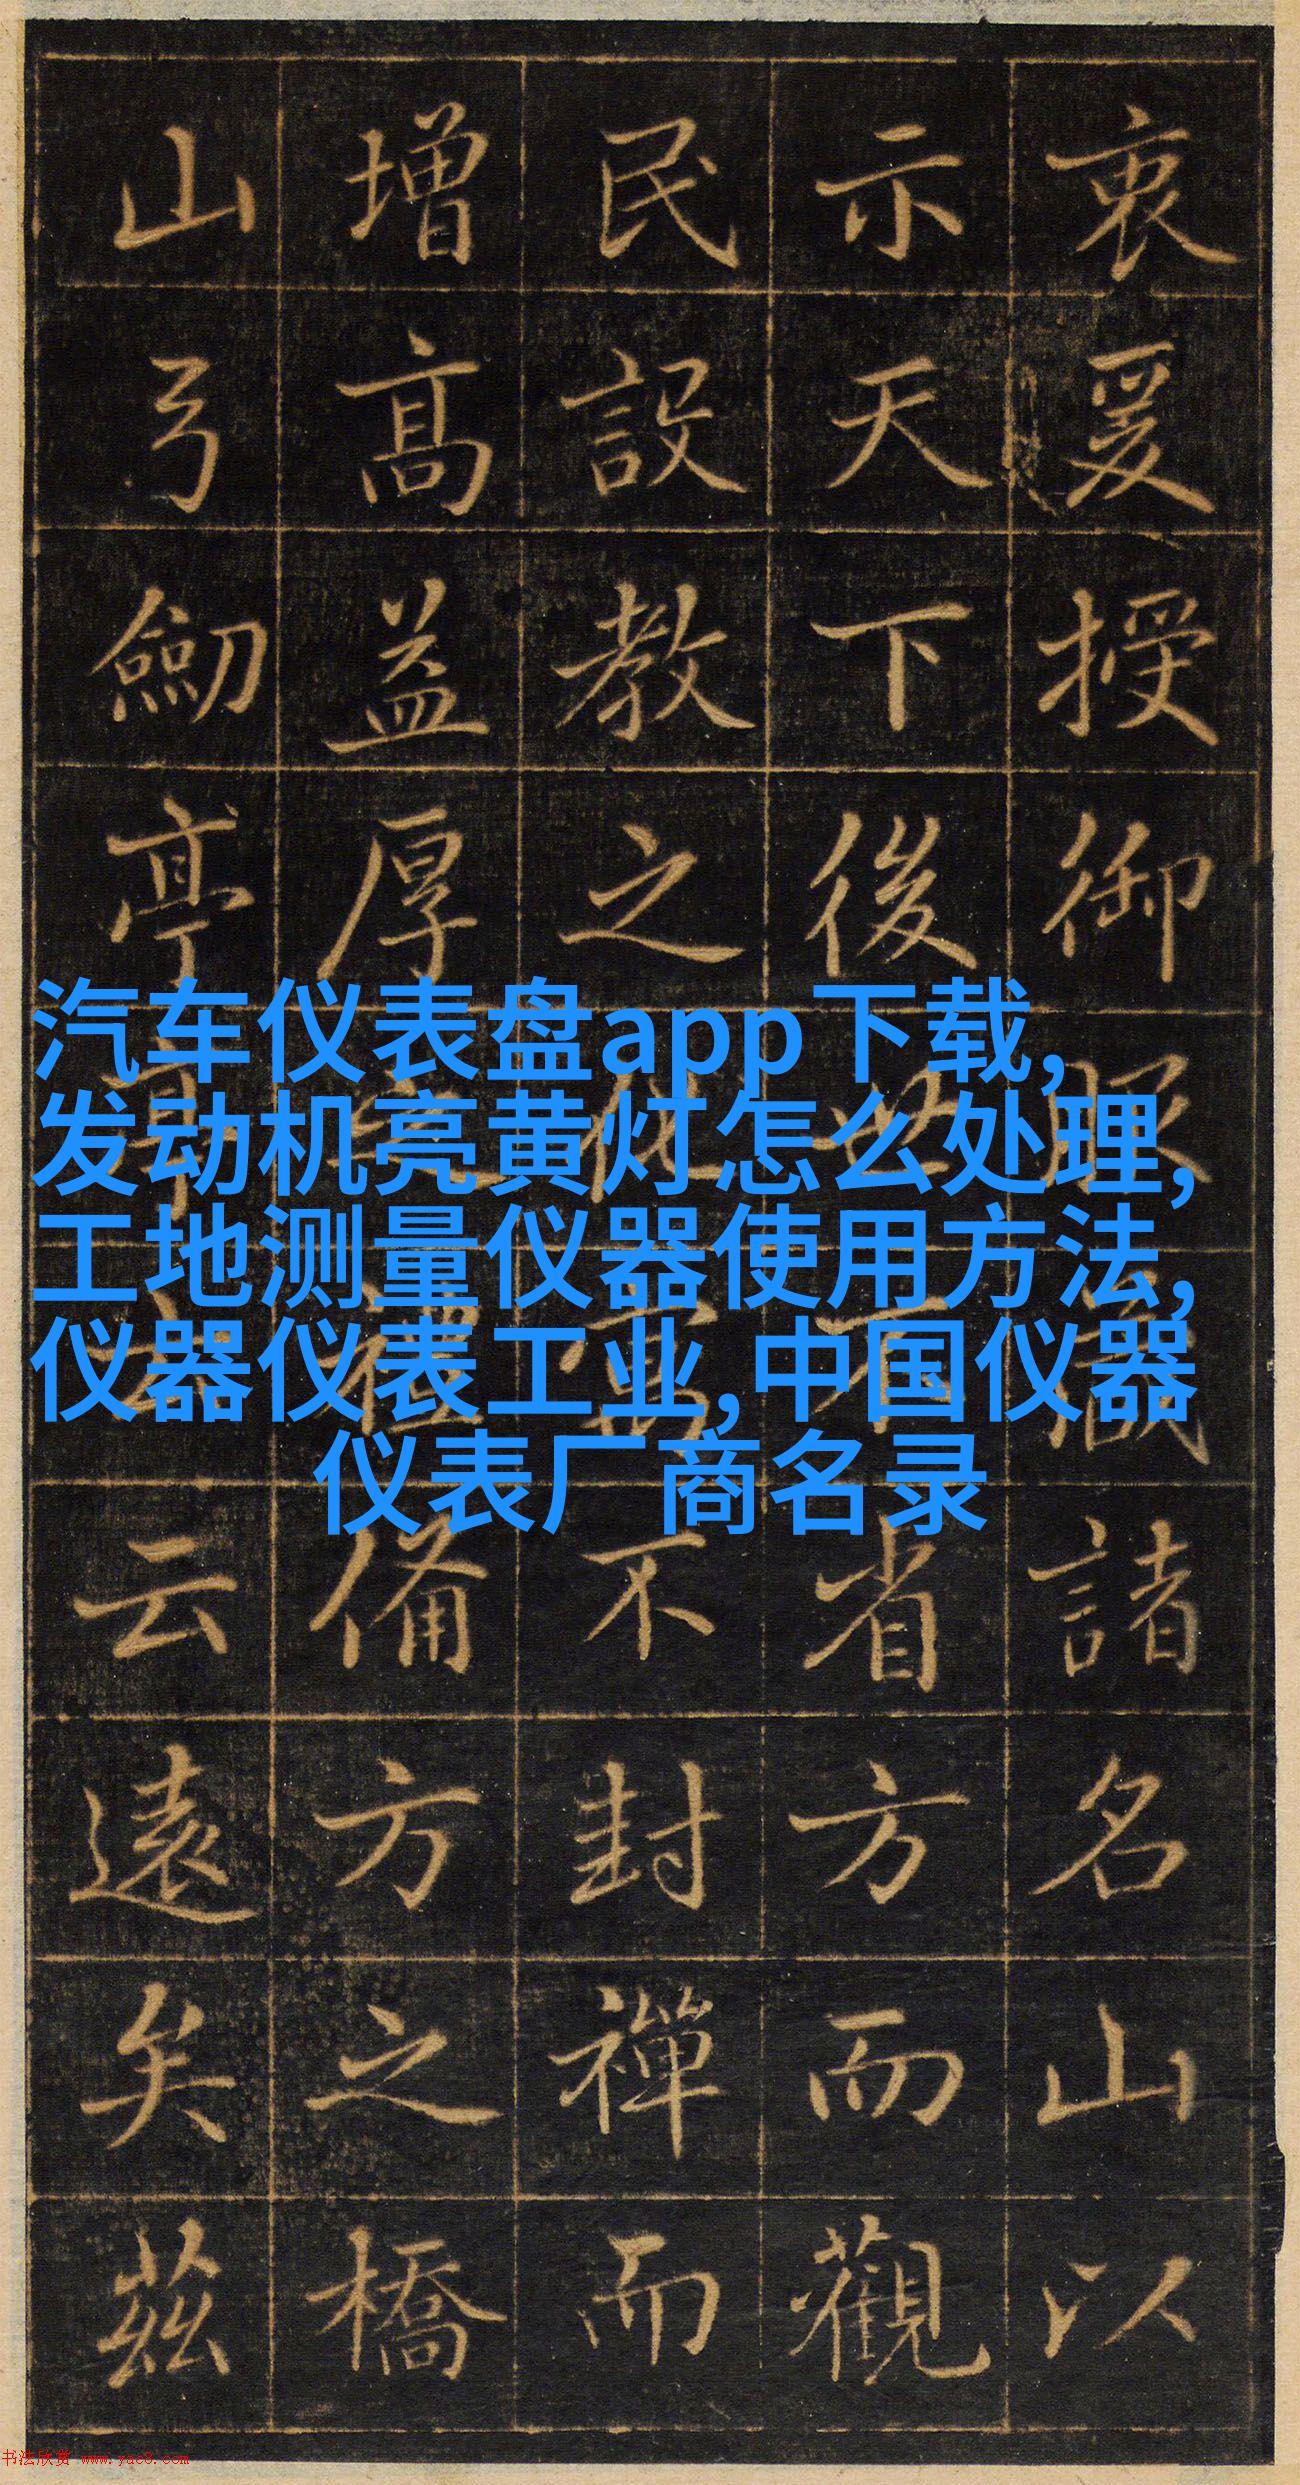 衷爰授御藏諸名山以
示天下後世省方而觀
民設教之化不封禪而
增高益厚之禮備方之橋
山弓劒亭亭云遠矣茲
汽车仪表盘app下载,
发动机亮黄灯怎么处理,
工地测量仪器使用方法,
仪器仪表工业,中国仪器
仪表厂商名录
书法欣赏 www.yac8.com